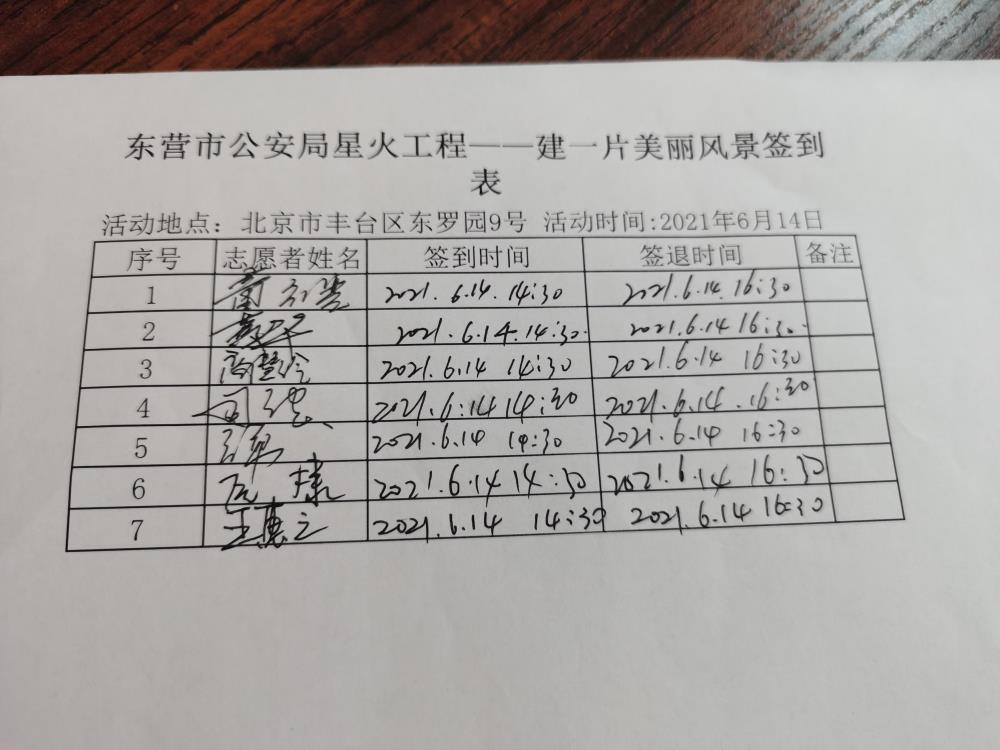 东营市公安局星火工程——建一片美丽风景签到
表
活动地点：北京市丰台区东罗园9号 活动时间:2021年6月14日
序号 志愿者姓名 签到时间 签退时间 备注
1 2021.6.14.14:30 2021.6.14.16:30
2 2021.6.14.14:30. 2021.6.14 16:30.
3 高慧玲 2021.6.14 14:30 2021.6.14 16:30
4 2021.6.14 14:30 2021.6.14.16:30
5 2021.6.14 14:30 2021.6.14 16:30
6 2021.6.14 14:30 2021.6.14 16:30
7 王惠立 2021.6.14 14:30 2021.6.14 16:30